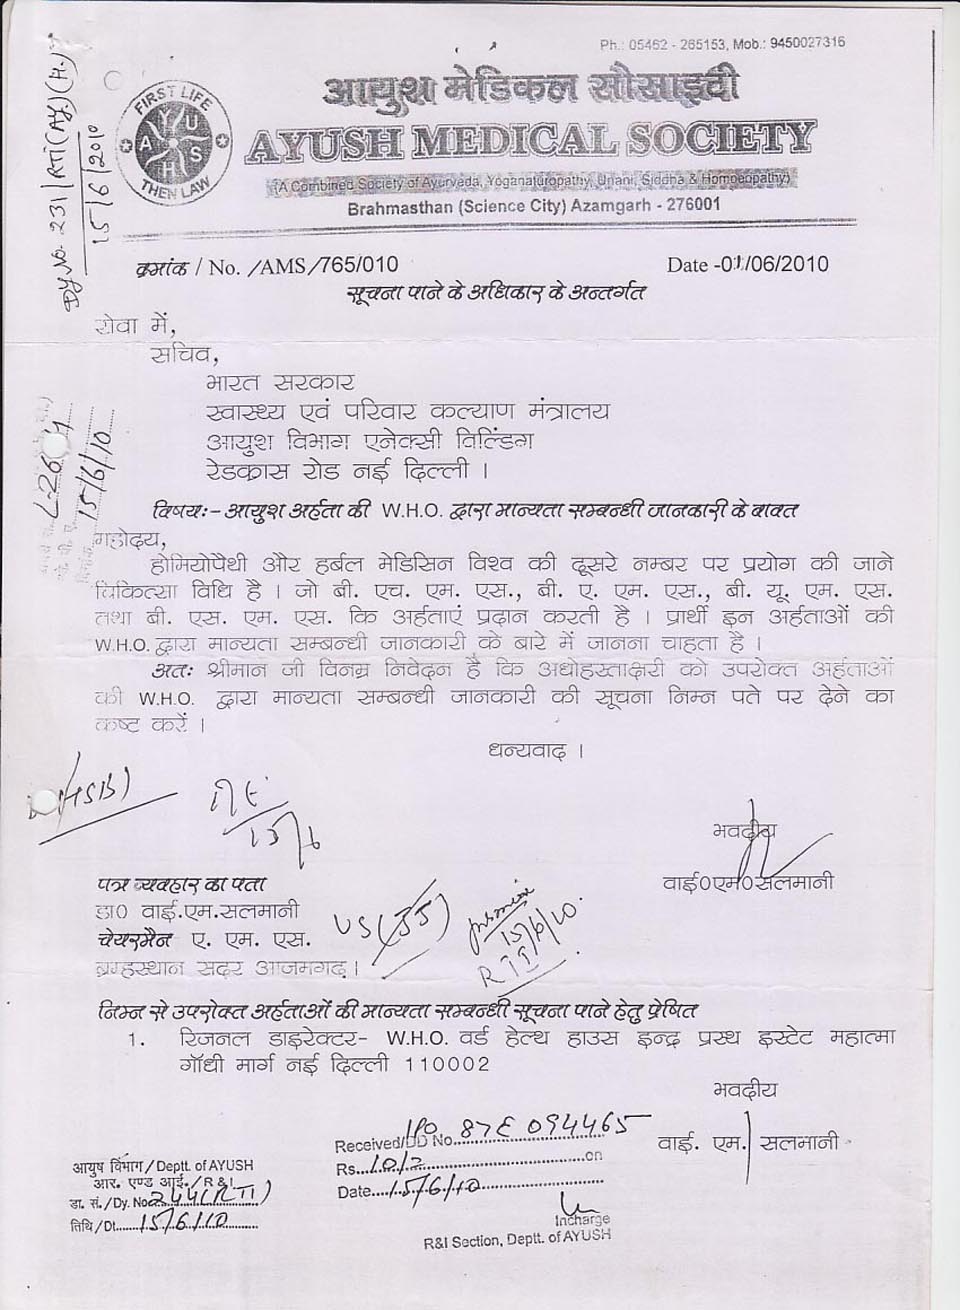 Ph.: 05462 - 265153, Mob.: 9450027316
आयुश मेडिकल सौसाइटी
AYUSH MEDICAL SOCIETY
(A Combined Society of Ayurveda, Yoganaturopathy, Unani, Siddha & Homoeopathy)
Brahmasthan (Science City) Azamgarh - 276001
FIRST LIFE
AYUSH
THEN LAW
Dy. No. 231/RTI(Ay.)(H.)
15/6/2010
क्रमांक / No. /AMS/765/010
Date -01/06/2010
सूचना पाने के अधिकार के अन्तर्गत
सेवा में,
सचिव,
भारत सरकार
स्वास्थ्य एवं परिवार कल्याण मंत्रालय
आयुश विभाग एनेक्सी विल्डिंग
रेडक्रास रोड नई दिल्ली ।
15/6/10
विषयः- आयुश अर्हता की W.H.O. द्वारा मान्यता सम्बन्धी जानकारी के बावत
महोदय,
होमियोपैथी और हर्बल मेडिसिन विश्व की दूसरे नम्बर पर प्रयोग की जाने
चिकित्सा विधि है । जो बी. एच. एम. एस., बी. ए. एम. एस., बी. यू. एम. एस.
तथा बी. एस. एम. एस. कि अर्हताएं प्रदान करती है । प्रार्थी इन अर्हताओं की
W.H.O. द्वारा मान्यता सम्बन्धी जानकारी के बारे में जानना चाहता है ।
अतः श्रीमान जी विनम्र निवेदन है कि अधोहस्ताक्षरी को उपरोक्त अर्हताओं
की W.H.O. द्वारा मान्यता सम्बन्धी जानकारी की सूचना निम्न पते पर देने का
कष्ट करें ।
धन्यवाद ।
15/6
भवदीय
वाई०एम०सलमानी
पत्र व्यवहार का पता
डा० वाई.एम.सलमानी
चेयरमैन ए. एम. एस.
ब्रम्हस्थान सदर आजमगढ़ ।
US(JJ)
15/6/10.
निम्न से उपरोक्त अर्हताओं की मान्यता सम्बन्धी सूचना पाने हेतु प्रेषित
1. रिजनल डाइरेक्टर- W.H.O. वर्ड हेल्थ हाउस इन्द्र प्रस्थ इस्टेट महात्मा
गॉधी मार्ग नई दिल्ली 110002
भवदीय
वाई. एम. सलमानी
Received/DD No. IPO 87E 094465
Rs...10/2...on
Date...15/6/10
Incharge
R&I Section, Deptt. of AYUSH
आयुष विभाग/Deptt. of AYUSH
आर. एण्ड आई./R & I
डा. सं./Dy. No. 244(RTI)
तिथि/Dt....15/6/10